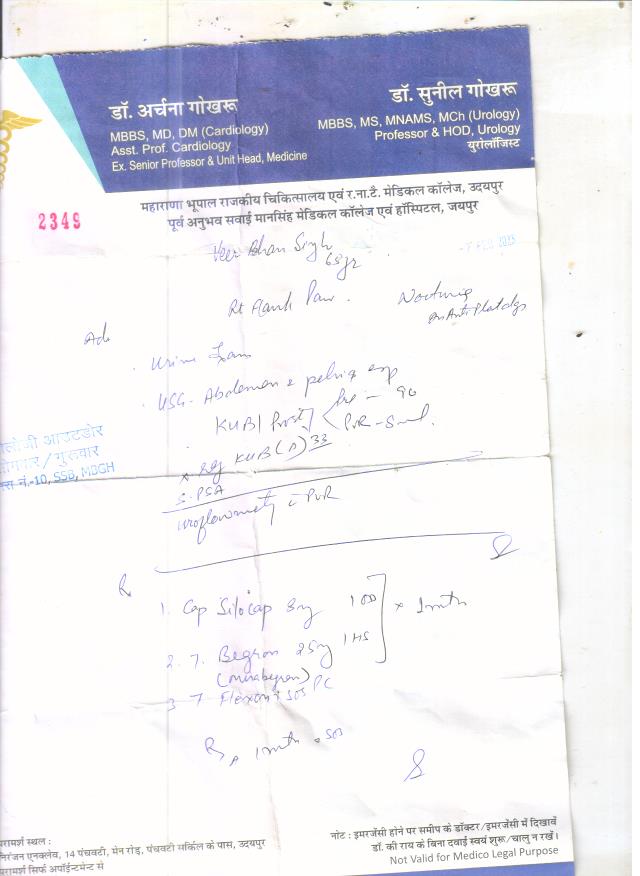 डॉ. अर्चना गोखरू
MBBS, MD, DM (Cardiology)
Asst. Prof. Cardiology
Ex. Senior Professor & Unit Head, Medicine
डॉ. सुनील गोखरू
MBBS, MS, MNAMS, MCh (Urology)
Professor & HOD, Urology
यूरोलॉजिस्ट
महाराणा भूपाल राजकीय चिकित्सालय एवं र.ना.टै. मेडिकल कॉलेज, उदयपुर
पूर्व अनुभव सवाई मानसिंह मेडिकल कॉलेज एवं हॉस्पिटल, जयपुर
2349
Veer Bhan Singh
65yr
Rt Flank Pain.
Nocturia
on Antiplatelets
Adv
Urine Exam
USG. Abdomen & pelvis esp
KUB/Prost
Pre - 90
PVR - Small
x Ray KUB (A) 33
S. PSA
Uroflowmetry c PVR
लोजी आउटडोर
सोमवार / गुरुवार
नं.-10, SSB, MBGH
R
1. Cap Silocap 8mg 1 OD
x 1 mth
2. T. Begron 25mg 1 HS
(mirabegron)
3 T Flexon 1 SOS PC
R A 1 mth . SOS
परामर्श स्थल :
निरंजन एनक्लेव, 14 पंचवटी, मेन रोड़, पंचवटी सर्किल के पास, उदयपुर
परामर्श सिर्फ अपॉईन्टमेन्ट से
नोट : इमरजेंसी होने पर समीप के डॉक्टर/इमरजेंसी में दिखावें
डॉ. की राय के बिना दवाई स्वयं शुरू/चालु न रखें।
Not Valid for Medico Legal Purpose